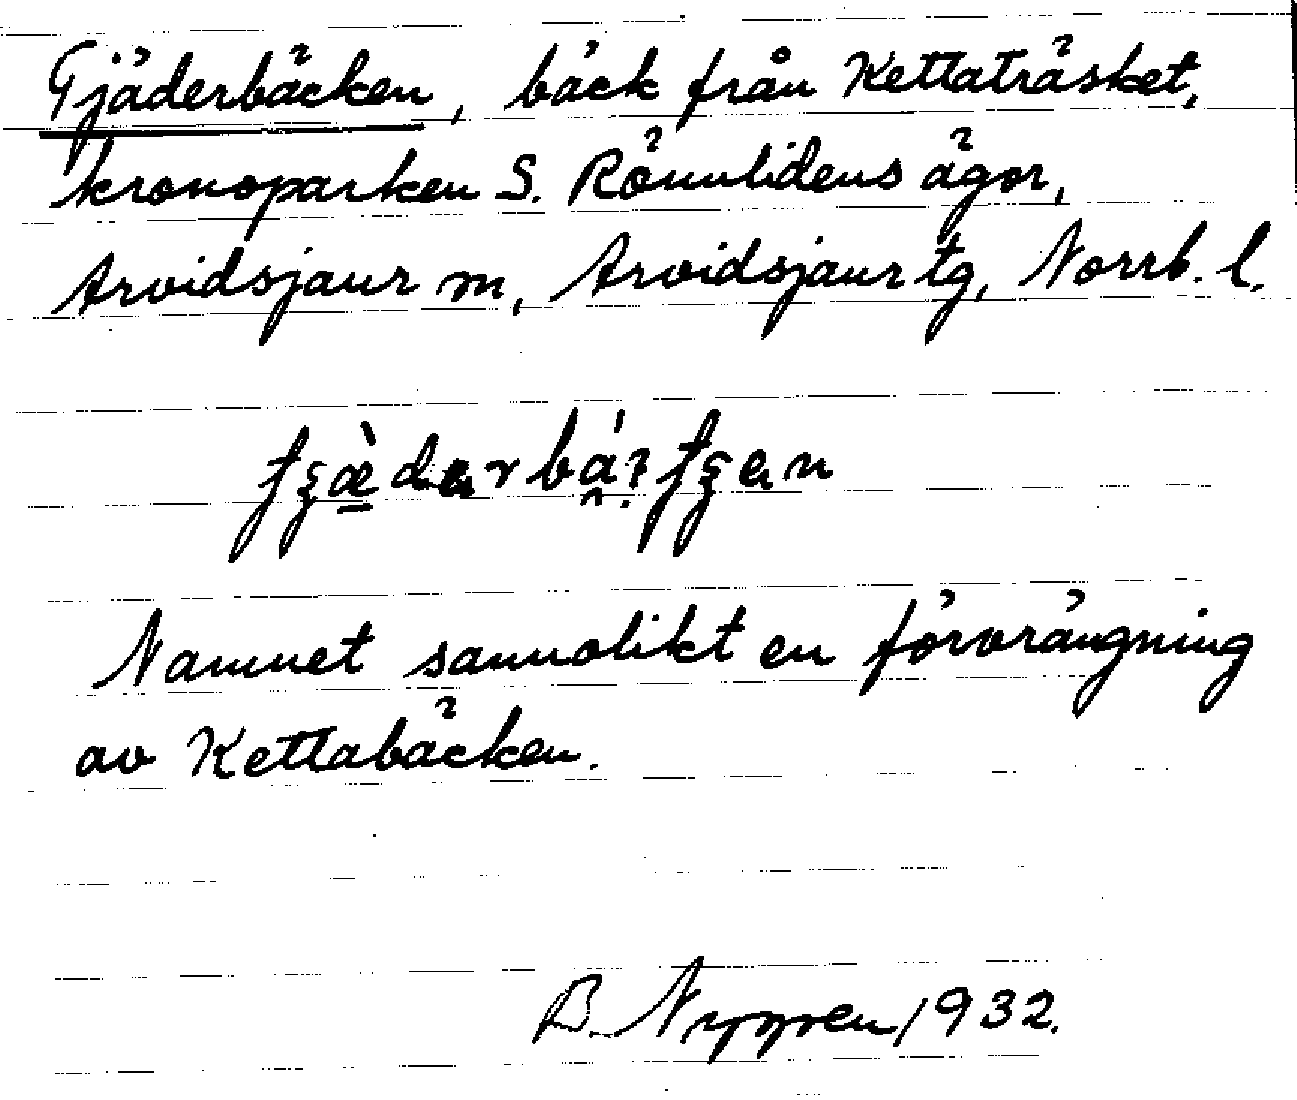 Tjäderbäcken, bäck från Kettaträsket,
kronoparken S. Rönnlidens ägor,
Arvidsjaur m, Arvidsjaur tg, Norrb. l.
Namnet sannolikt en förvrängning
av Kettabäcken.
B. Nygren 1932.